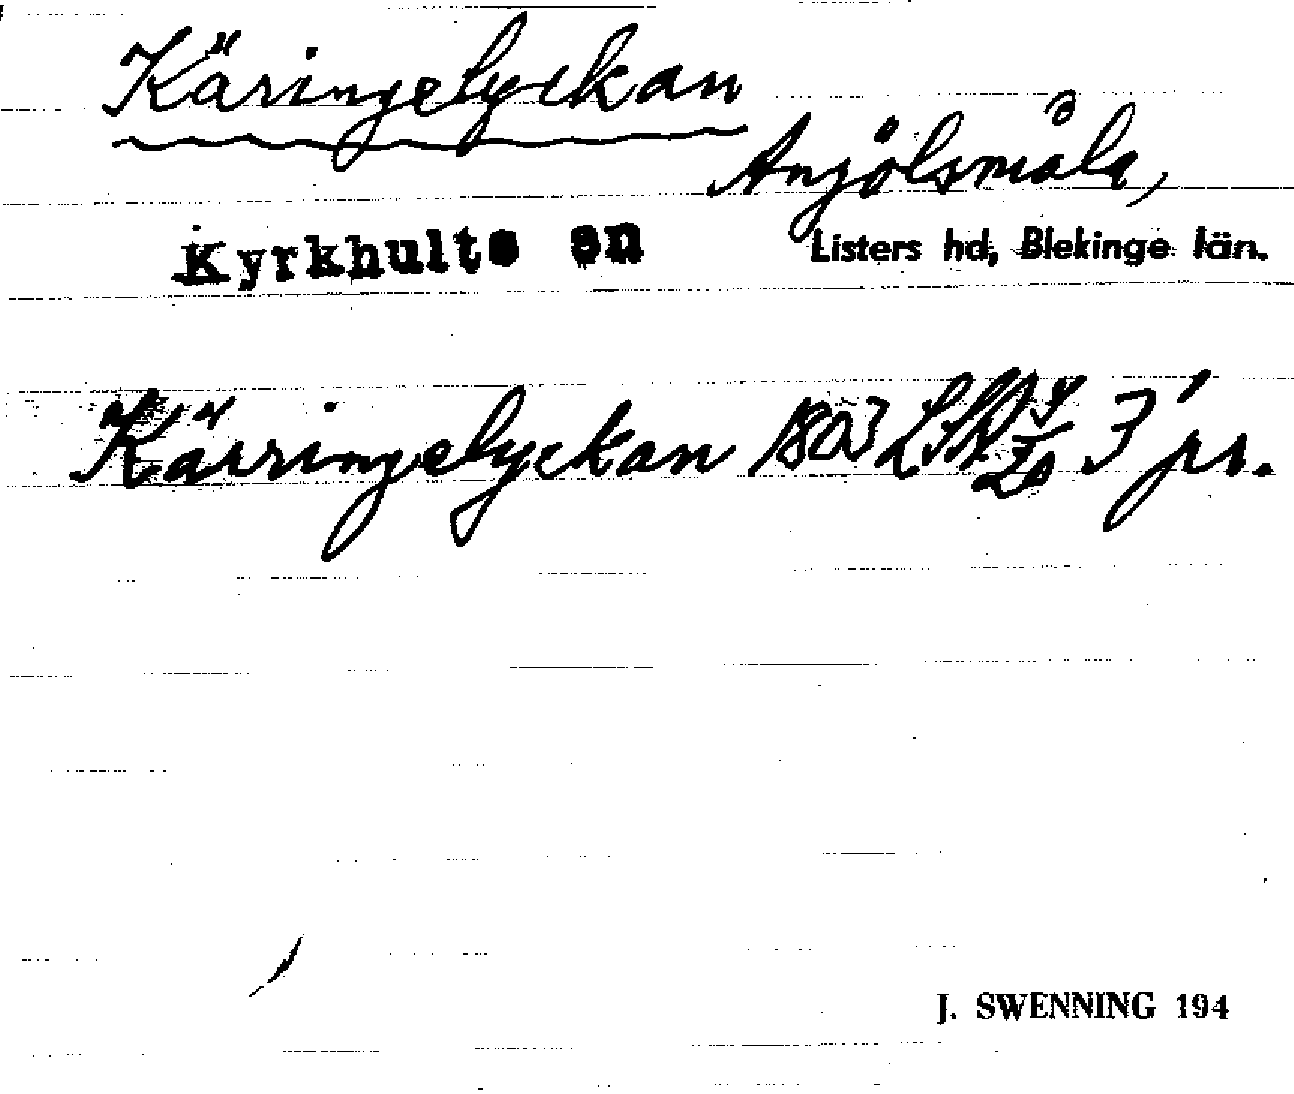 Käringelyckan
Anjölsmåla,
Kyrkhults sn Listers hd, Blekinge län.
Kärringelyckan 1803 3 pr.
J. SWENNING 194